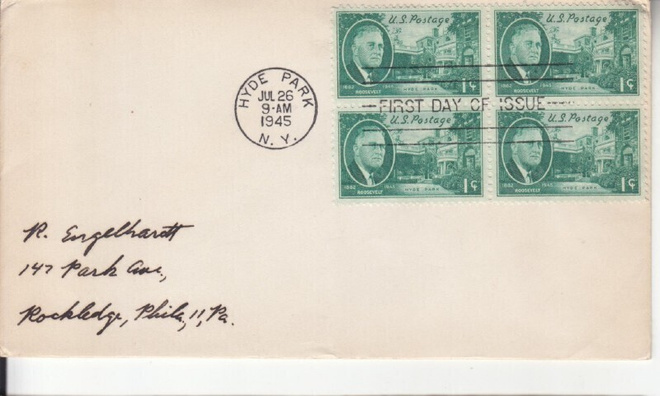 U.S. Postage U.S. Postage
1882 1945 HYDE PARK 1¢ HYDE PARK 1¢
ROOSEVELT ROOSEVELT
HYDE PARK
JUL 26
9-AM
1945
N.Y.
FIRST DAY OF ISSUE
U.S. Postage U.S. Postage
1882 1945 HYDE PARK 1¢ 1882 1945 HYDE PARK 1¢
ROOSEVELT ROOSEVELT
R. Engelhardt
147 Park Ave.,
Rockledge, Phila, 11, Pa.